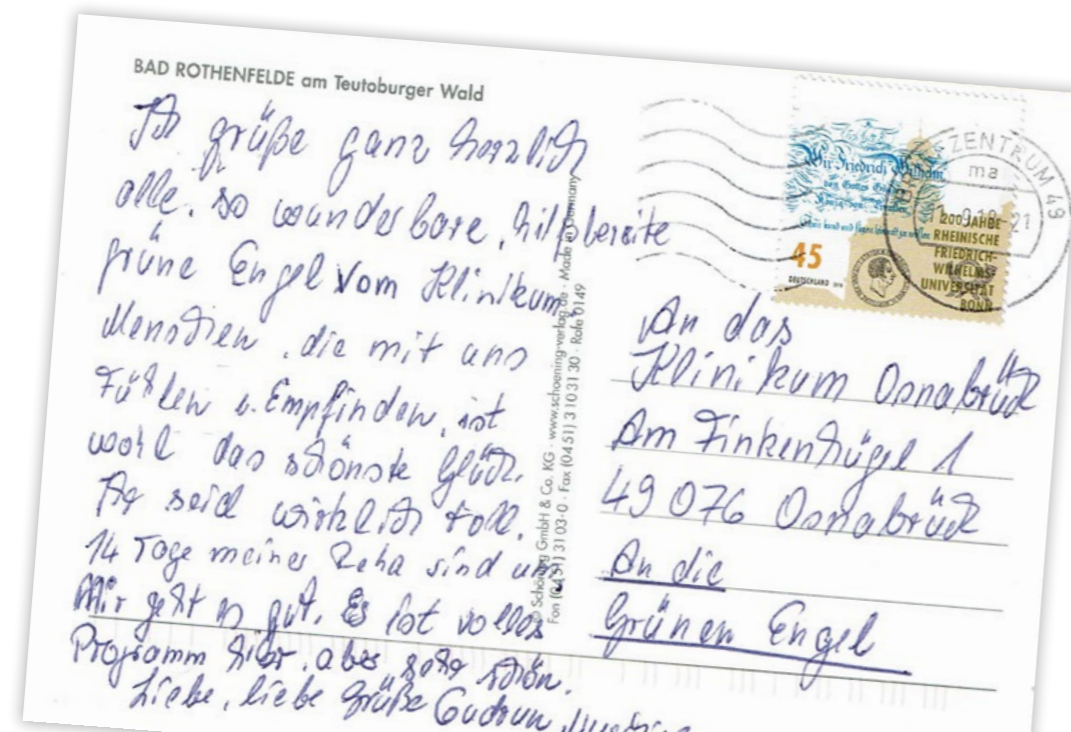 BAD ROTHENFELDE am Teutoburger Wald
Ich grüße ganz herzlich
alle, so wunderbare, hilfsbereite
grüne Engel vom Klinikum.
Menschen, die mit uns
Fühlen u. Empfinden, ist
wohl das schönste Glück.
Ihr seid wirklich toll.
14 Tage meiner Reha sind um.
Mir geht es gut. Es ist volles
Programm hier, aber sehr schön.
Liebe, liebe Grüße Gudrun
© Schöning GmbH & Co. KG · www.schoening-verlag.de · Made in Germany
Fon (0451) 31 03-0 · Fax (0451) 3 10 31 30 · Rofe 0149
Wir Friedrich Wilhelm
von Gottes
45
DEUTSCHLAND
200 JAHRE
RHEINISCHE
FRIEDRICH-
WILHELMS-
UNIVERSITÄT
BONN
ZENTRUM 49
ma
21
An das
Klinikum Osnabrück
Am Finkenhügel 1
49 076 Osnabrück
An die
Grünen Engel